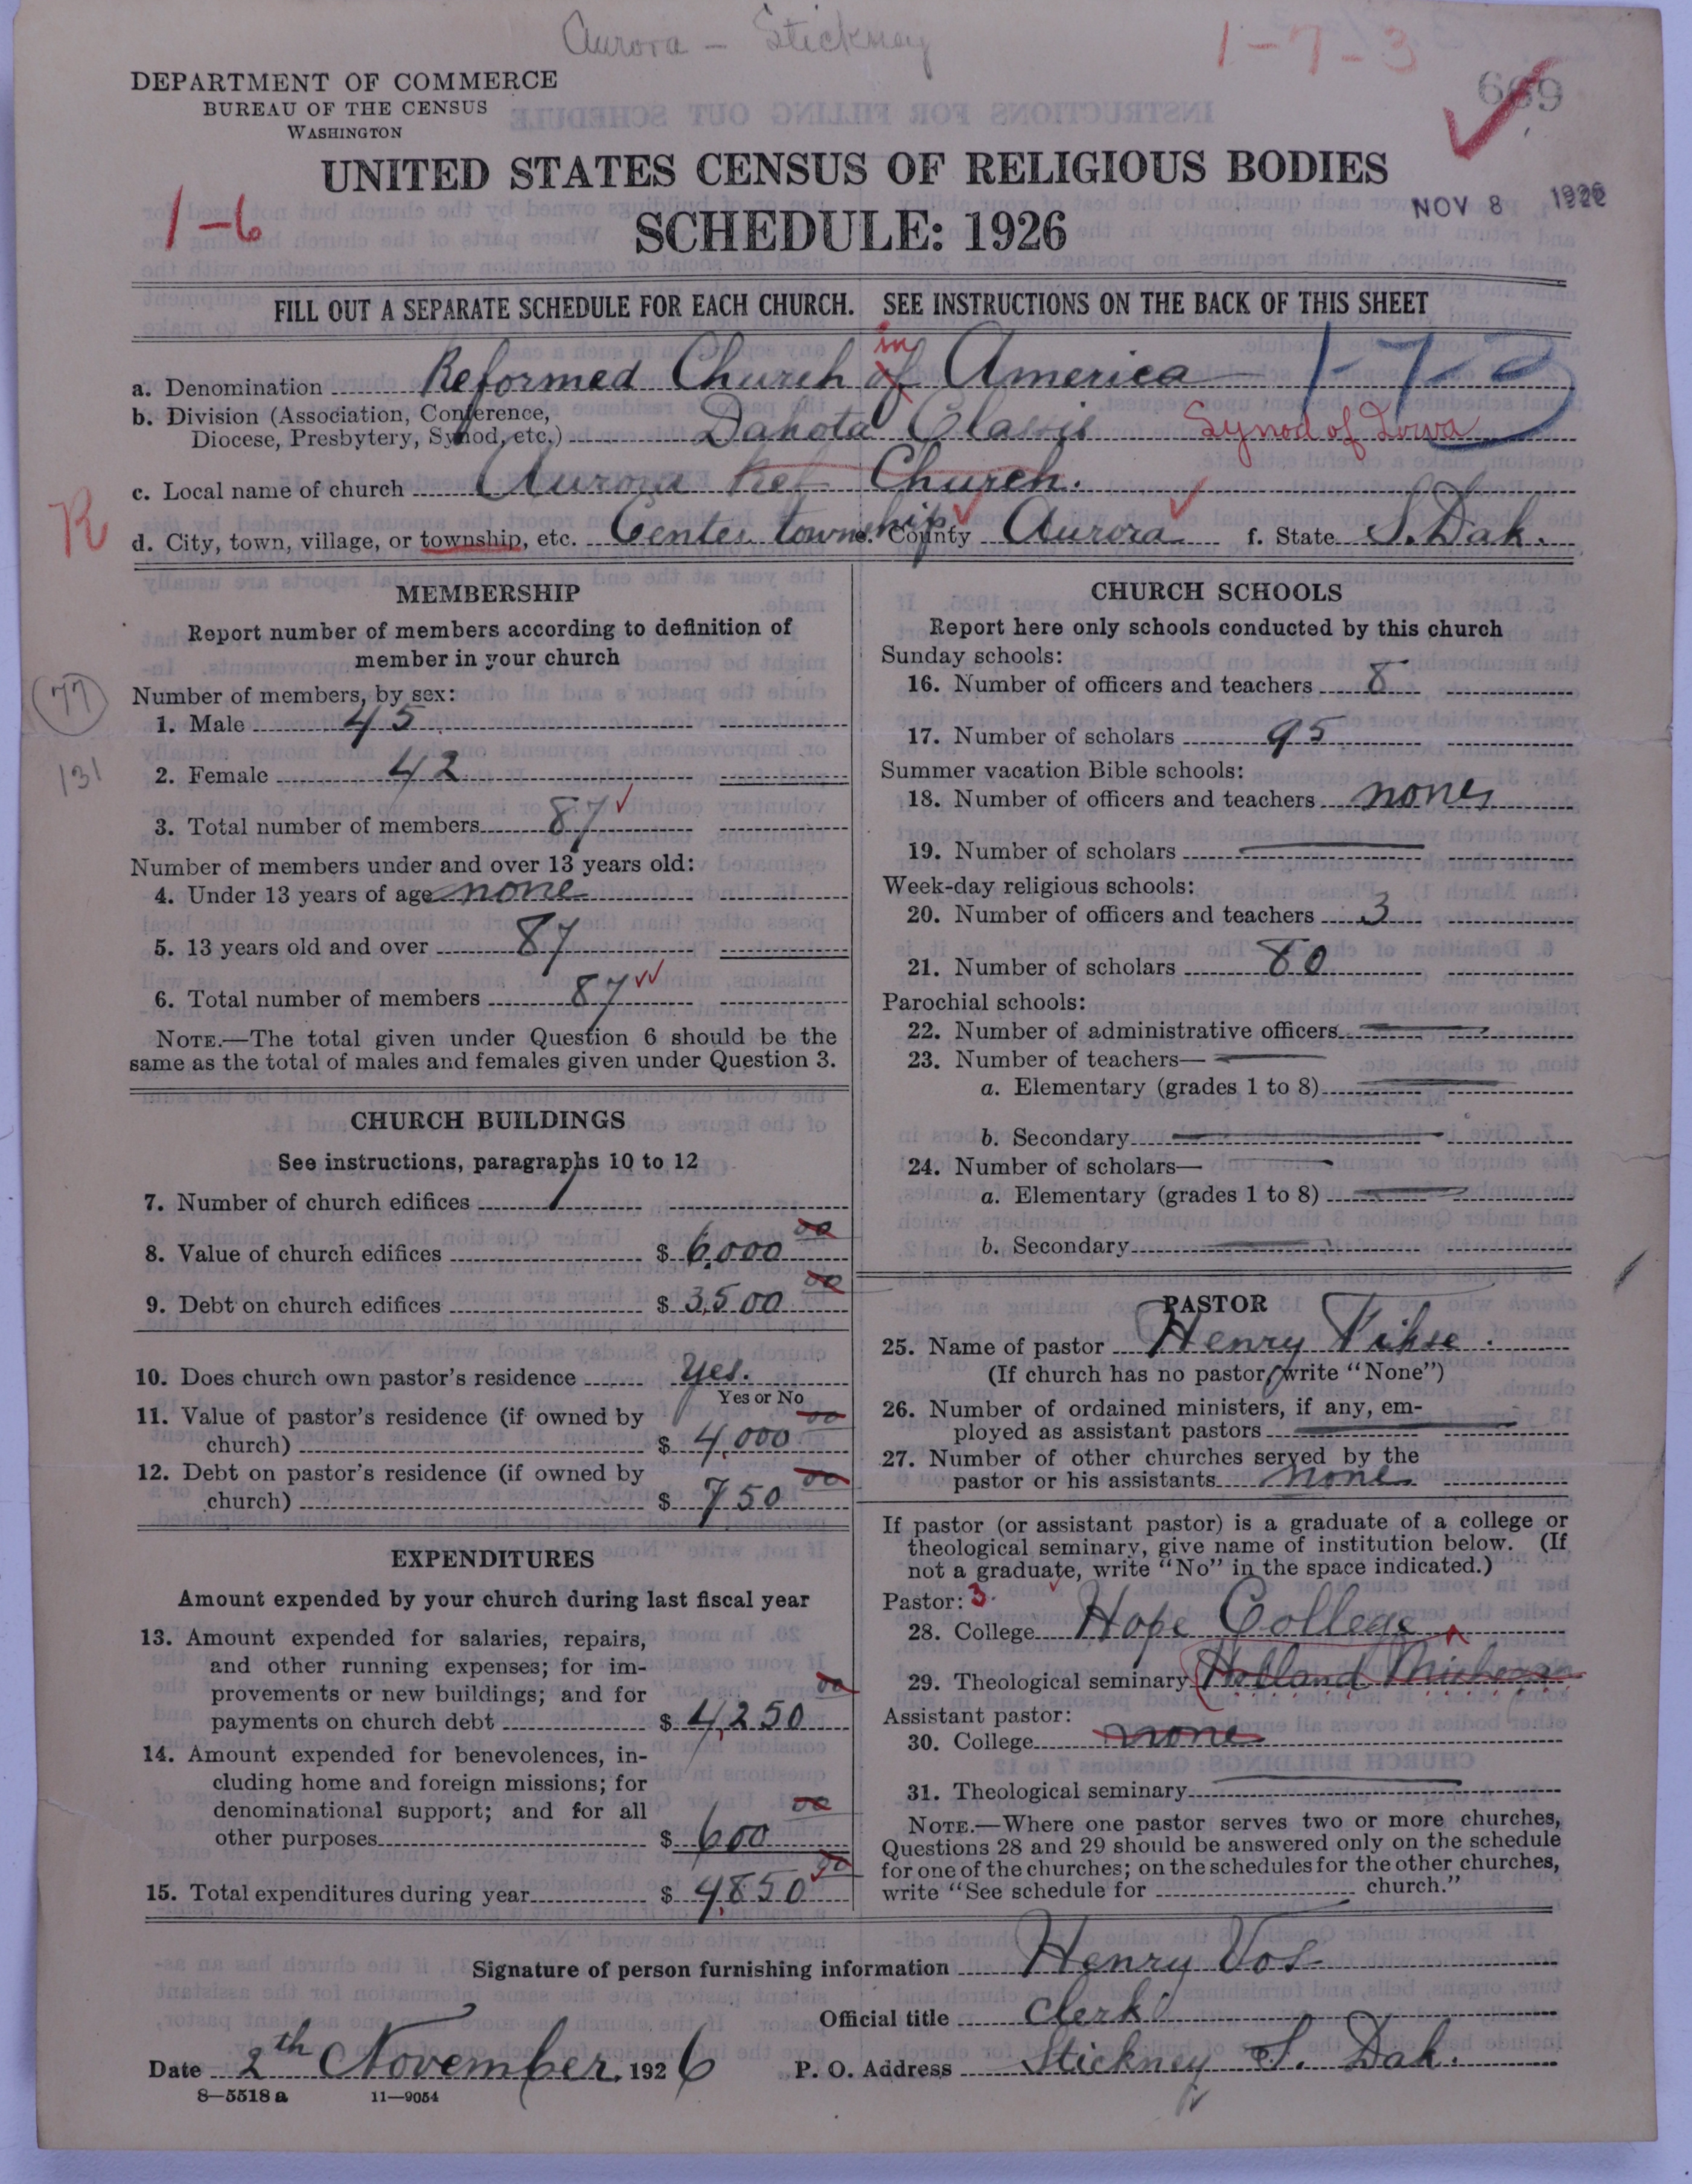 Aurora - Stickney
1-7-3
DEPARTMENT OF COMMERCE
BUREAU OF THE CENSUS
WASHINGTON
669
UNITED STATES CENSUS OF RELIGIOUS BODIES
1-6
NOV 8 1926
SCHEDULE: 1926
FILL OUT A SEPARATE SCHEDULE FOR EACH CHURCH. SEE INSTRUCTIONS ON THE BACK OF THIS SHEET
in
a. Denomination Reformed Church of America 1-7-3
b. Division (Association, Conference,
Diocese, Presbytery, Synod, etc.) Dakota Classis Synod of Iowa
c. Local name of church Aurora Ref Church.
R
d. City, town, village, or township, etc. Center township e. County Aurora f. State S. Dak.
MEMBERSHIP
Report number of members according to definition of
member in your church
77
Number of members, by sex:
1. Male 45
131
2. Female 42
3. Total number of members 87
Number of members under and over 13 years old:
4. Under 13 years of age none
5. 13 years old and over 87
6. Total number of members 87
NOTE.—The total given under Question 6 should be the
same as the total of males and females given under Question 3.
CHURCH BUILDINGS
See instructions, paragraphs 10 to 12
7. Number of church edifices 1
8. Value of church edifices $ 6,000 00
9. Debt on church edifices $ 3,500 00
10. Does church own pastor's residence yes.
Yes or No
11. Value of pastor's residence (if owned by
church) $ 4,000 00
12. Debt on pastor's residence (if owned by
church) $ 750 00
EXPENDITURES
Amount expended by your church during last fiscal year
13. Amount expended for salaries, repairs,
and other running expenses; for im-
provements or new buildings; and for
payments on church debt $ 4,250 00
14. Amount expended for benevolences, in-
cluding home and foreign missions; for
denominational support; and for all
other purposes $ 600 00
15. Total expenditures during year $ 4,850 00
CHURCH SCHOOLS
Report here only schools conducted by this church
Sunday schools:
16. Number of officers and teachers 8
17. Number of scholars 95
Summer vacation Bible schools:
18. Number of officers and teachers none
19. Number of scholars
Week-day religious schools:
20. Number of officers and teachers 3
21. Number of scholars 80
Parochial schools:
22. Number of administrative officers
23. Number of teachers—
a. Elementary (grades 1 to 8)
b. Secondary
24. Number of scholars—
a. Elementary (grades 1 to 8)
b. Secondary
PASTOR
25. Name of pastor Henry
(If church has no pastor, write "None")
26. Number of ordained ministers, if any, em-
ployed as assistant pastors
27. Number of other churches served by the
pastor or his assistants none
If pastor (or assistant pastor) is a graduate of a college or
theological seminary, give name of institution below. (If
not a graduate, write "No" in the space indicated.)
Pastor: 3.
28. College Hope College
29. Theological seminary Holland Michigan
Assistant pastor:
30. College none
31. Theological seminary
NOTE.—Where one pastor serves two or more churches,
Questions 28 and 29 should be answered only on the schedule
for one of the churches; on the schedules for the other churches,
write "See schedule for church."
Signature of person furnishing information Henry Vos
Official title Clerk
Date 2th November, 1926 P. O. Address Stickney S. Dak.
8—5518 a 11—9054